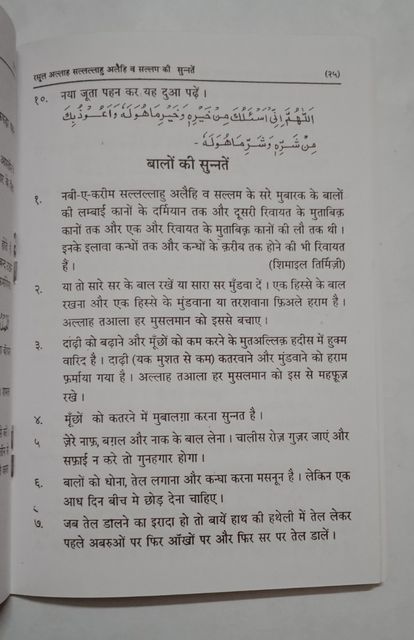 रसूल अल्लाह सल्लल्लाहु अलैहि व सल्लम की सुन्नतें (२५)
१०. नया जूता पहन कर यह दुआ पढ़ें।
اَللّٰهُمَّ اِنِّىْ اَسْئَلُكَ مِنْ خَيْرِهٖ وَخَيْرِ مَا هُوَ لَهٗ وَاَعُوْذُ بِكَ
مِنْ شَرِّهٖ وَشَرِّ مَا هُوَ لَهٗ -
बालों की सुन्नतें
१. नबी-ए-करीम सल्लल्लाहु अलैहि व सल्लम के सरे मुबारक के बालों
की लम्बाई कानों के दर्मियान तक और दूसरी रिवायत के मुताबिक़
कानों तक और एक और रिवायत के मुताबिक़ कानों की लौ तक थी।
इनके इलावा कन्धों तक और कन्धों के क़रीब तक होने की भी रिवायत
हैं। (शिमाइल तिर्मिज़ी)
२. या तो सारे सर के बाल रखें या सारा सर मुँडवा दें। एक हिस्से के बाल
रखना और एक हिस्से के मुंडवाना या तरशवाना फ़िअले हराम है।
अल्लाह तआला हर मुसलमान को इससे बचाए।
३. दाढ़ी को बढ़ाने और मूँछों को कम करने के मुतअल्लिक़ हदीस में हुक्म
वारिद है। दाढ़ी (यक मुशत से कम) कतरवाने और मुंडवाने को हराम
फ़र्माया गया है। अल्लाह तआला हर मुसलमान को इस से महफ़ूज़
रखे।
४. मूँछों को कतरने में मुबालग़ा करना सुन्नत है।
५ ज़ेरे नाफ़, बग़ल और नाक के बाल लेना। चालीस रोज़ गुज़र जाएं और
सफ़ाई न करे तो गुनहगार होगा।
६. बालों को धोना, तेल लगाना और कन्घा करना मसनून है। लेकिन एक
आध दिन बीच मे छोड़ देना चाहिए।
७. जब तेल डालने का इरादा हो तो बायें हाथ की हथेली में तेल लेकर
पहले अबरुओं पर फिर आँखों पर और फिर सर पर तेल डालें।